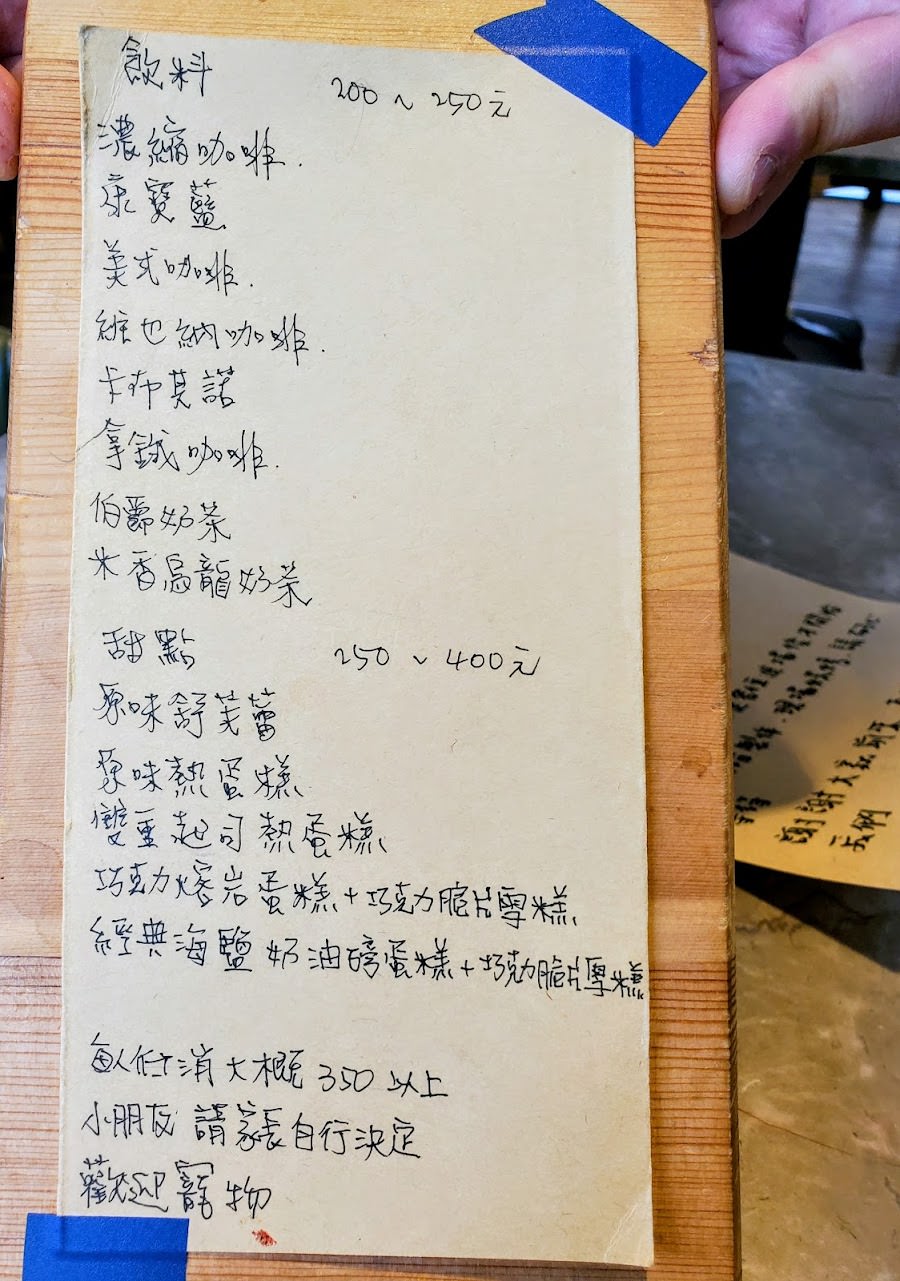 飲料 200~250元
濃縮咖啡.
康寶藍
美式咖啡.
維也納咖啡.
卡布其諾
拿鐵咖啡.
伯爵奶茶
米香烏龍奶茶
甜點 250~400元
原味舒芙蕾
原味熱蛋糕
雙重起司熱蛋糕
巧克力熔岩蛋糕+巧克力脆片雪糕
經典海鹽奶油磅蛋糕+巧克力脆片雪糕
個人低消大概350以上
小朋友 請家長自行決定
歡迎寵物
謝謝大家
我們